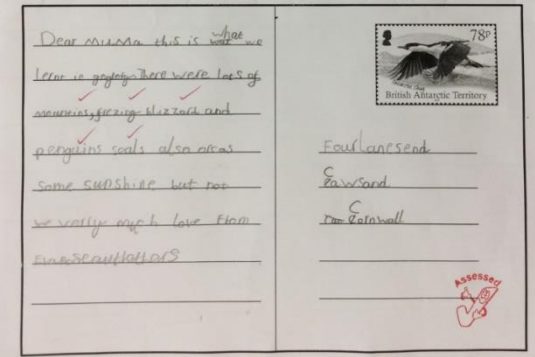 Dear MuMMa this is what we
lernt in There were lots of
freezing blizzard and
penguins seals also orcas
some sunshine but not
we verry much love from
78p
British Antarctic Territory
Fourlanesend
Cawsand
Cornwall
Assessed